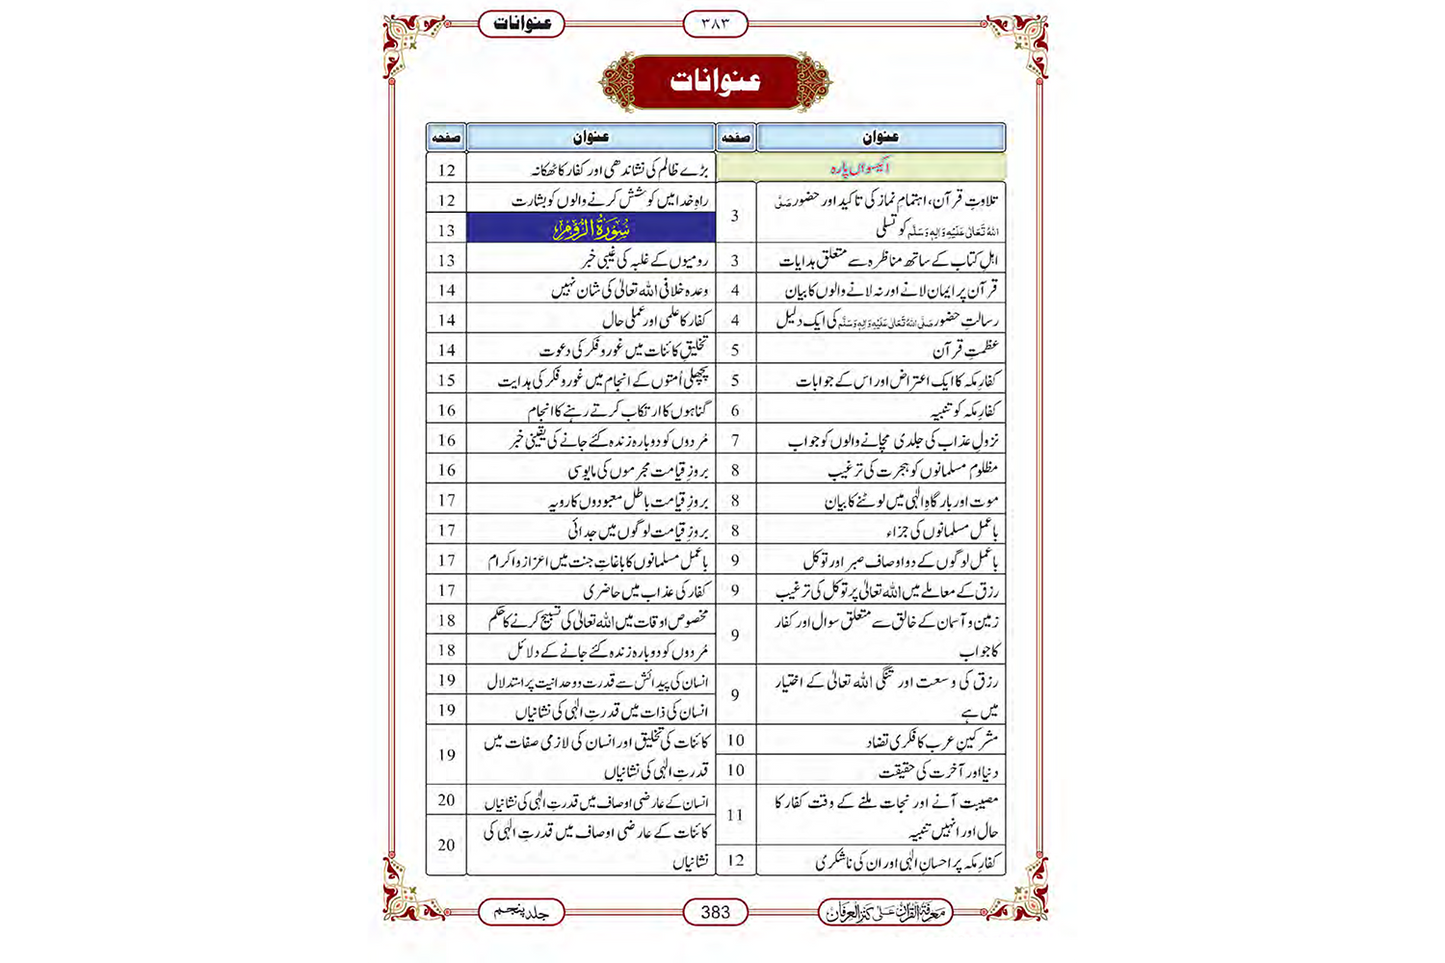 عنوانات
۳۸۳
عنوانات
عنوان
صفحہ
عنوان
صفحہ
اکیسواں پارہ
تلاوتِ قرآن، اہتمامِ نماز کی تاکید اور حضور صَلَّی
اللہُ تَعَالٰی عَلَیْہِ وَاٰلِہٖ وَسَلَّم کو تسلی
3
اہلِ کتاب کے ساتھ مناظرہ سے متعلق ہدایات
3
قرآن پر ایمان لانے اور نہ لانے والوں کا بیان
4
رسالتِ حضور صَلَّی اللہُ تَعَالٰی عَلَیْہِ وَاٰلِہٖ وَسَلَّم کی ایک دلیل
4
عظمتِ قرآن
5
کفارِ مکہ کا ایک اعتراض اور اس کے جوابات
5
کفارِ مکہ کو تنبیہ
6
نزولِ عذاب کی جلدی مچانے والوں کو جواب
7
مظلوم مسلمانوں کو ہجرت کی ترغیب
8
موت اور بارگاہِ الٰہی میں لوٹنے کا بیان
8
باعمل مسلمانوں کی جزاء
8
باعمل لوگوں کے دو اوصاف صبر اور توکل
9
رزق کے معاملے میں اللہ تعالیٰ پر توکل کی ترغیب
9
زمین و آسمان کے خالق سے متعلق سوال اور کفار
کا جواب
9
رزق کی وسعت اور تنگی اللہ تعالیٰ کے اختیار
میں ہے
9
مشرکینِ عرب کا فکری تضاد
10
دنیا اور آخرت کی حقیقت
10
مصیبت آنے اور نجات ملنے کے وقت کفار کا
حال اور انہیں تنبیہ
11
کفارِ مکہ پر احسانِ الٰہی اور ان کی ناشکری
12
بڑے ظالم کی نشاندھی اور کفار کا ٹھکانہ
12
راہِ خدا میں کوشش کرنے والوں کو بشارت
12
سُوْرَۃُ الرُّوْم
13
رومیوں کے غلبہ کی غیبی خبر
13
وعدہ خلافی اللہ تعالیٰ کی شان نہیں
14
کفار کا علمی اور عملی حال
14
تخلیقِ کائنات میں غور و فکر کی دعوت
14
پچھلی اُمتوں کے انجام میں غور و فکر کی ہدایت
15
گناہوں کا ارتکاب کرتے رہنے کا انجام
16
مُردوں کو دوبارہ زندہ کئے جانے کی یقینی خبر
16
بروزِ قیامت مجرموں کی مایوسی
16
بروزِ قیامت باطل معبودوں کا رویہ
17
بروزِ قیامت لوگوں میں جدائی
17
باعمل مسلمانوں کا باغاتِ جنت میں اعزاز و اکرام
17
کفار کی عذاب میں حاضری
17
مخصوص اوقات میں اللہ تعالیٰ کی تسبیح کرنے کا حکم
18
مُردوں کو دوبارہ زندہ کئے جانے کے دلائل
18
انسان کی پیدائش سے قدرت و وحدانیت پر استدلال
19
انسان کی ذات میں قدرتِ الٰہی کی نشانیاں
19
کائنات کی تخلیق اور انسان کی لازمی صفات میں
قدرتِ الٰہی کی نشانیاں
19
انسان کے عارضی اوصاف میں قدرتِ الٰہی کی نشانیاں
20
کائنات کے عارضی اوصاف میں قدرتِ الٰہی کی
نشانیاں
20
معرفۃ القرآن علیٰ کنز العرفان
383
جلد پنجم